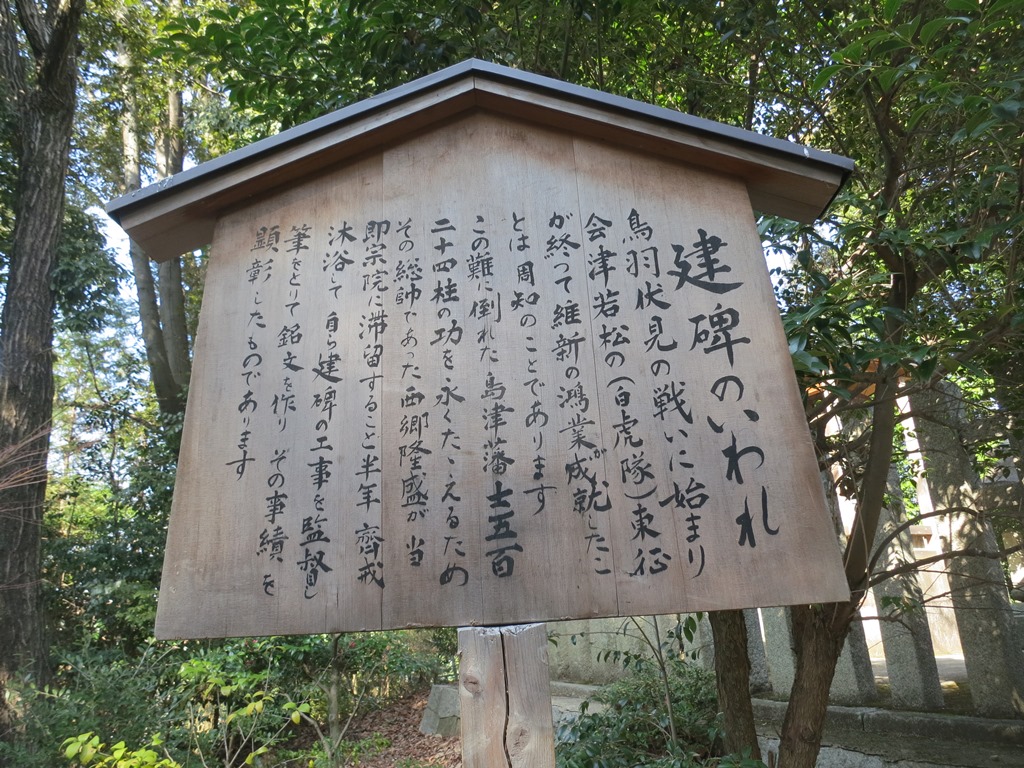 建碑のいわれ
鳥羽伏見の戦いに始まり
会津若松の(白虎隊)東征
が終って維新の鴻業が成就したこ
とは周知のことであります
この難に倒れた島津藩士五百
二十四柱の功を永くたゝえるため
その総帥であった西郷隆盛が当
即宗院に滞留すること半年齊戒
沐浴して自ら建碑の工事を監督し
筆をとりて銘文を作りその事績を
顕彰したものであります